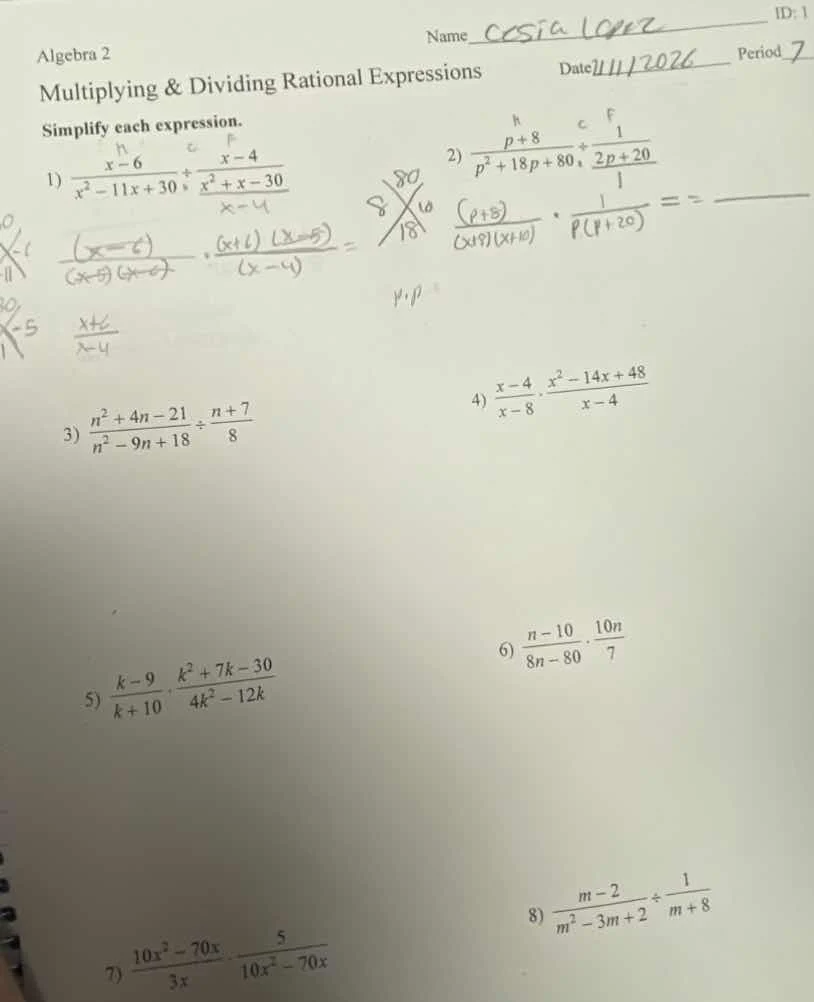 ID: 1
Algebra 2
Name Cesia Lopez
Multiplying & Dividing Rational Expressions
Date 2/11/2026 Period 7
Simplify each expression.
1) (x − 6)/(x² − 11x + 30) ÷ (x − 4)/(x² + x − 30)
x-4
(x-6)/((x-5)(x-6)) · ((x+6)(x-5))/(x-4) =
-6
-11
-5
1
(x+6)/(x-4)
2) (p + 8)/(p² + 18p + 80) ÷ 1/(2p + 20)
1
80
8 10
18
(p+8)/((x+8)(x+10)) · 1/(p(p+20)) = =
p.p
3) (n² + 4n − 21)/(n² − 9n + 18) ÷ (n + 7)/8
4) (x − 4)/(x − 8) · (x² − 14x + 48)/(x − 4)
5) (k − 9)/(k + 10) · (k² + 7k − 30)/(4k² − 12k)
6) (n − 10)/(8n − 80) · 10n/7
7) (10x² − 70x)/3x · 5/(10x² − 70x)
8) (m − 2)/(m² − 3m + 2) ÷ 1/(m + 8)